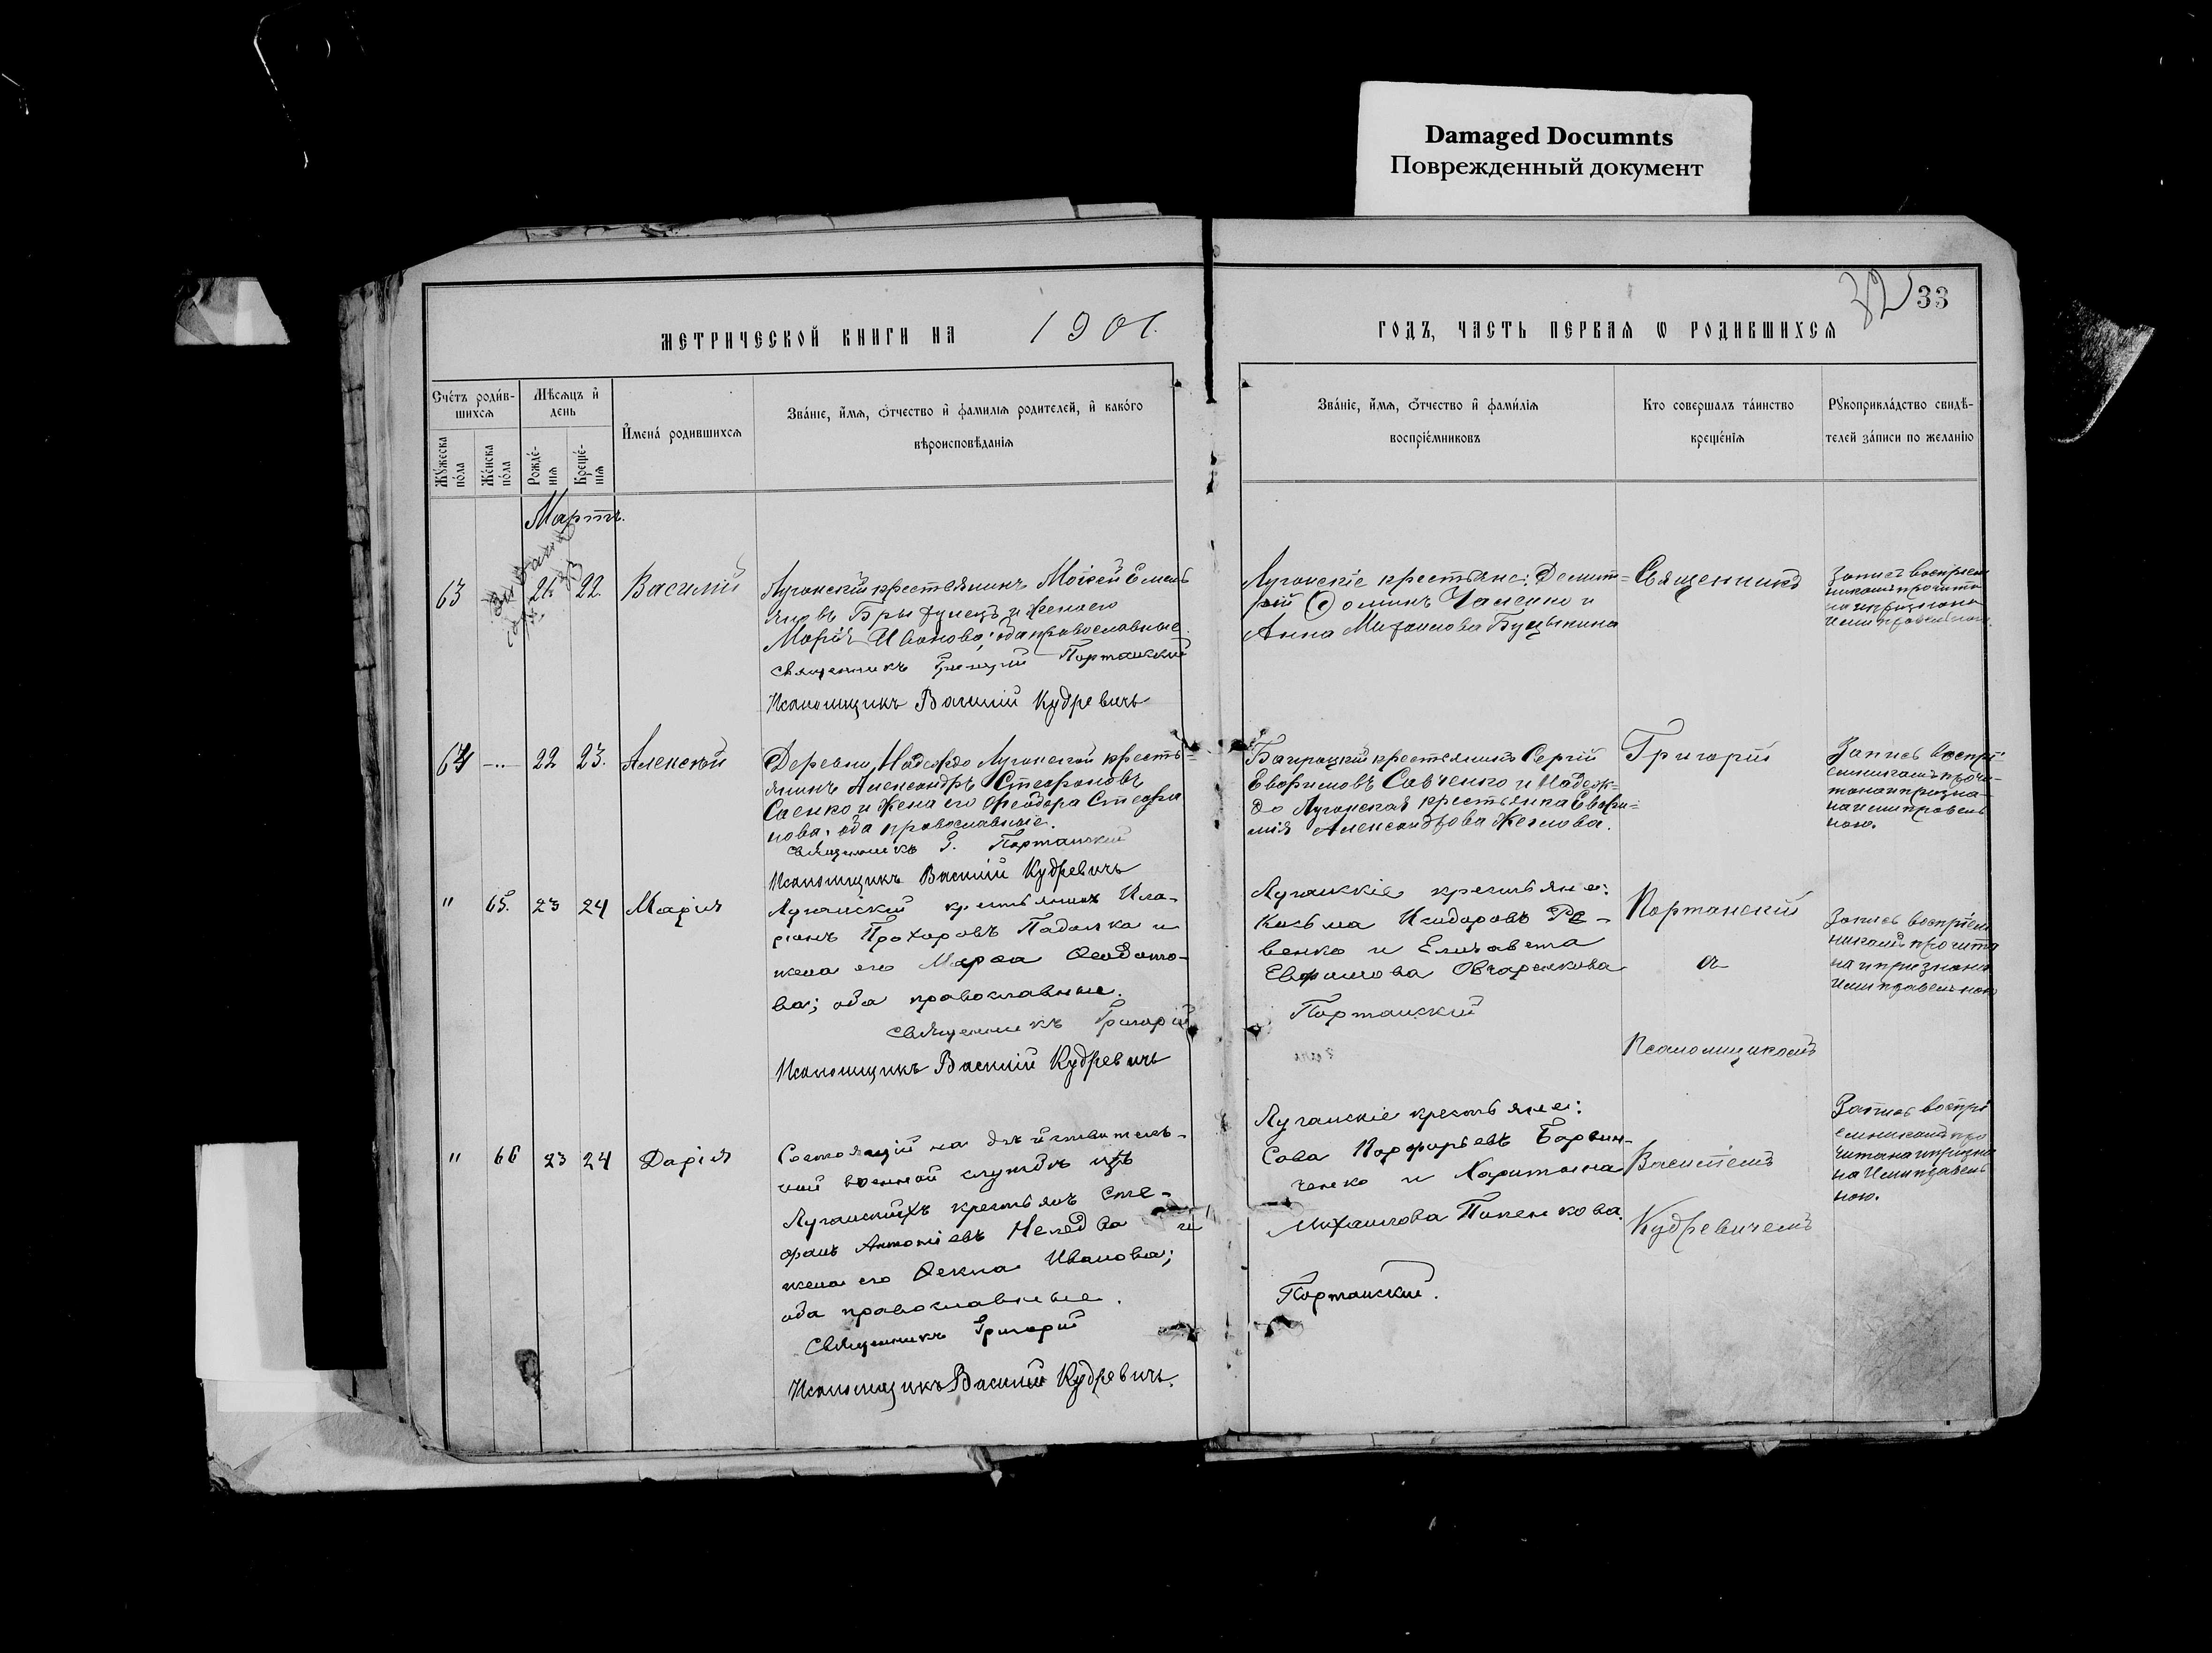 Damaged Documnts
Поврежденный документ
33
МЕТРИЧЕСКОЙ КНИГИ НА 1901.
ГОДЪ, ЧАСТЬ ПЕРВАЯ Ѡ РОДИВШИХСЯ
Счётъ родив-
шихся
Мѣсяцъ и
день
Имена родившихся
Званіе, имя, отчество и фамилія родителей, и какого
вѣроисповѣданія
Мужеска
пола
Женска
пола
Рожде-
нія
Креще-
нія
Званіе, имя, отчество и фамилія
воспріемниковъ
Кто совершалъ таинство
крещенія
Рукоприкладство свидѣ-
телей записи по желанію
Мартъ.
63 22. Василій
Луганскій крестьянинъ Моисей Емель
яновъ и жена его
Марія Иванова; оба православные
Священникъ Григорій Портанскій
Псаломщикъ Василій Кудревичъ
Луганскіе крестьяне:
и
Анна Михаилова
Священникъ
Запись воспріем
никами прочита
на и признана
ими правельною.
64 22 23. Алексѣй
Деревни Надежда Луганской кресть
янинъ Александръ Стефановъ
Саенко и жена его Феодора Стефа
нова, оба православные.
Священникъ Г. Портанскій
Псаломщикъ Василій Кудревичъ
крестьянинъ Сергій
Евфимовъ Савченко и Надеж-
да Луганская крестьянка Евфи-
мія Александрова
Григорій
Запись воспрі-
емниками прочи-
тана и призна-
на ими правель
ною.
" 65. 23 24 Марія
Луганскій крестьянинъ Ила-
ріонъ Прохоровъ Падалка и
жена его Марфа
ва; оба православные.
Священникъ Григорій
Псаломщикъ Василій Кудревичъ
Луганскіе крестьяне:
Косьма Исидоровъ Ре-
венко и Елизавета
Евфимова Овчаренкова
Портанскій
Портанскій
и
Псаломщикомъ
Запись воспріем
никами прочита
на и признана
ими правельною
" 66 23 24 Дарія
Состоящій на дѣйствитель-
ной военной службѣ изъ
Луганскихъ крестьянъ Сте-
фанъ Антоніевъ и
жена его Ѳекла Иванова;
оба православные.
Священникъ Григорій
Псаломщикъ Василій Кудревичъ.
Луганскіе крестьяне:
Сава Порфирьевъ Барвин-
ченко и Харитина
Михаилова Пипенкова.
Портанскій.
Василіемъ
Кудревичемъ
Запись воспрі
емниками про
читана и призна
на ими правель
ною.